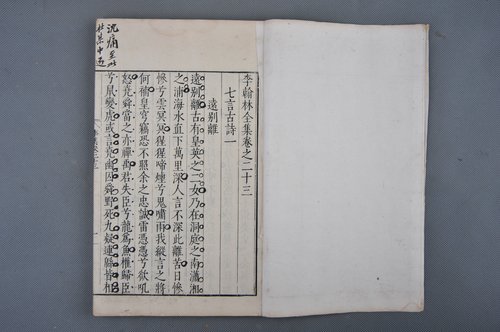 李翰林全集卷之二十三
七言古詩一
遠別離
遠別離古有皇英之二女乃在洞庭之南瀟湘
之浦海水直下萬里深人言不深此離苦日慘
慘兮雲冥冥猩猩啼煙兮鬼嘯雨我縱言之將
何補皇穹竊恐不照余之忠誠雷憑憑兮欲吼
怒堯舜當之亦禪禹君失臣兮龍為魚權歸臣
兮鼠變虎或言堯幽囚舜野死九疑連綿皆相
沉痛至此